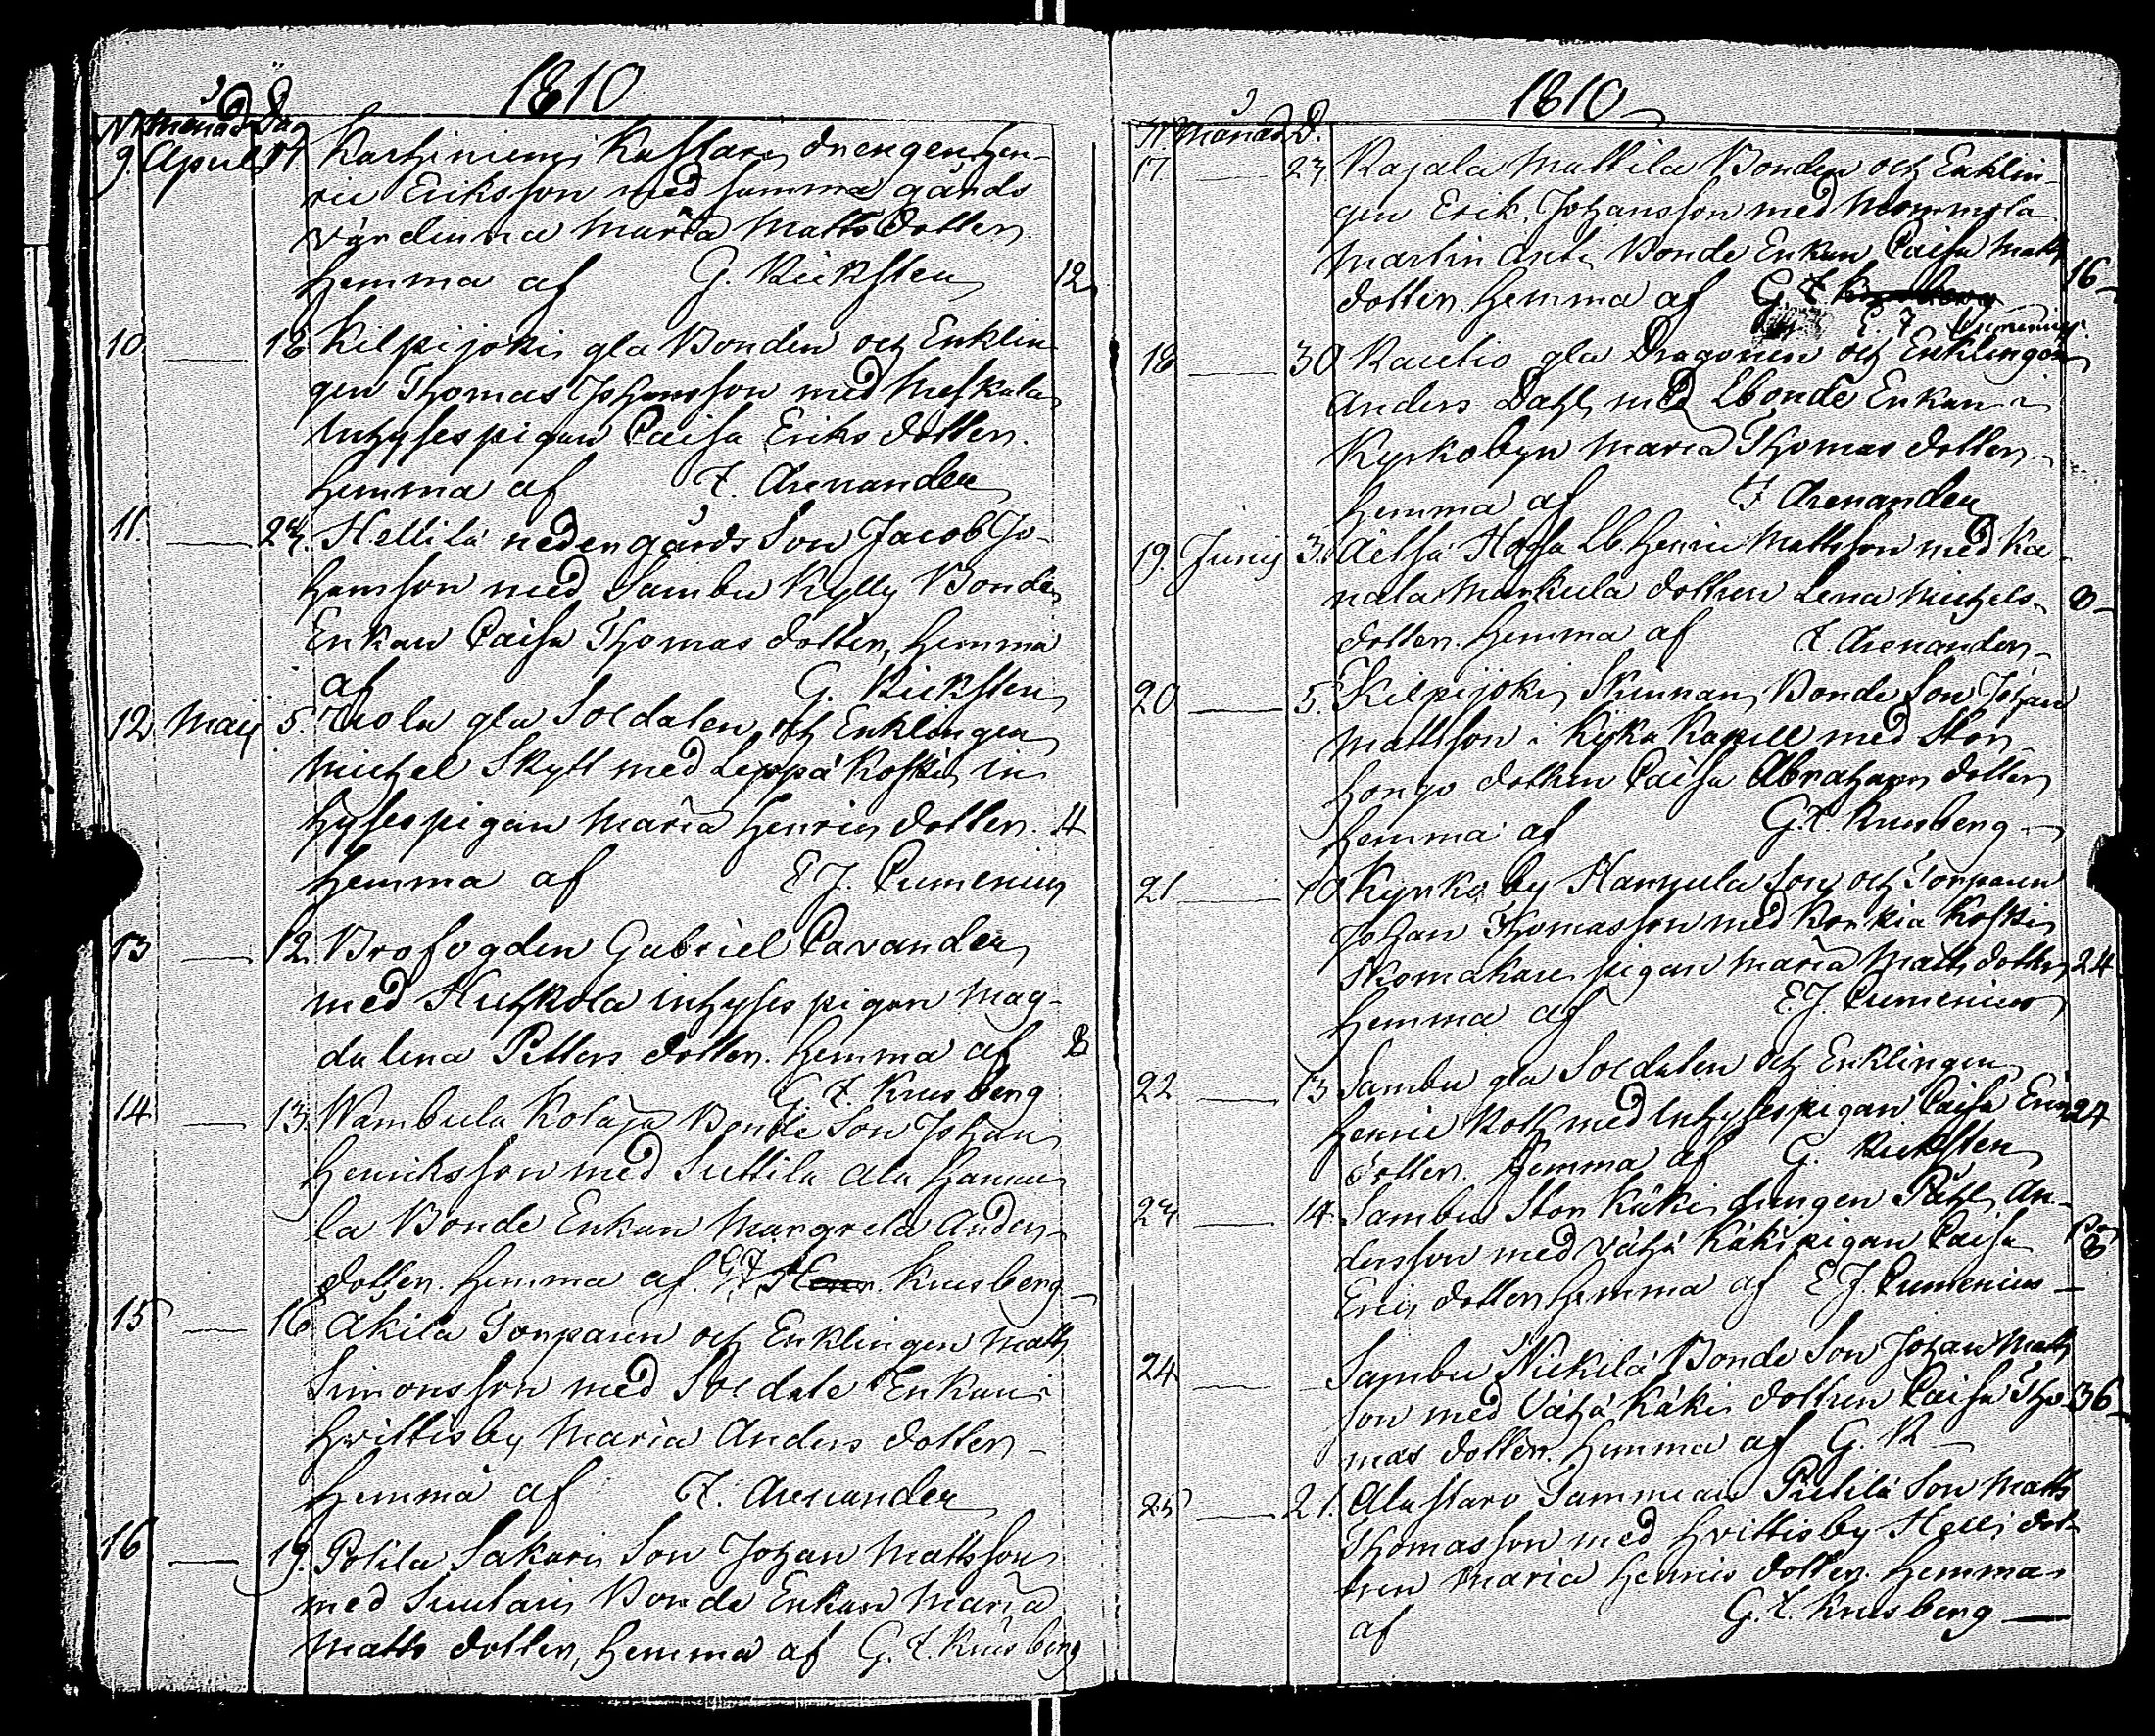 1810
N. Månad Dag
9. April 17. Karhiniemi Kallari drengen Hen-
ric Eriksson med samma gårds
värdinna Maria Matts dotter.
hemma af G. Ricksten 12
10 — 18 Kilpijoki gla Bonden och Enklin
gen Thomas Johansson med Meskala
Inhyses pigan Caisa Eriks dotter.
hemma af F. Arenander
11. — 24. Hellilä nedengårds Son Jacob Jo-
hansson med Sambu Kylly Bonde
Enkan Caisa Thomas dotter, hemma
af G. Ricksten
12 Maij 5. gla Soldaten och Enklingen
Michel Skytt med Leppäkoski in
hyses pigan Maria Henrics dotter. 4
hemma af E J. Cumenius
13 — 12. Brofogden Gabriel Cavander
med Huhkola inhyses pigan Mag-
dalena Petters dotter. hemma af 8
G. F. Krusberg
14 — 13 Wambula Kolaja Bonde Son Johan
Henriksson med Suttila Ala Hannu
la Bonde Enkan Margreta Anders
dotter. hemma af. G F Krusberg
15 — 16 Akila Torparen och Enklingen Matts
Simonsson med Soldate Enkan i
Hvittisby Maria Anders dotter
hemma af F. Arenander
16 — 19. Potila Sakari Son Johan Mattsson
med Suutari Bonde Enkan Maria
Matts dotter, hemma af G. F. Krusberg
1810
N. Månad D.
17 — 27 Rajala Mattila Bonden och Enklin-
gen Erik Johansson med Mommola
Martin Antti Bonde Enkan Caisa Matts
dotter. hemma af G. F. Krusberg 16
E. J. Cumenius
18 — 30 Rautio gla Dragonen och Enklingen
Anders Dahl med Ebonde Enkan i
Kyrkobyn Maria Thomas dotter
hemma af F Arenander
19. Junij 3. Äetsä Hoja Lb. Henric Mattsson med Ka-
nala Markula dottren Lena Michels
dotter. hemma af F. Arenander 8
20 — 5. Kilpijoki Skinnari Bonde Son Johan
Mattsson i Kjka Kapell med Stor
Hongo dottren Caisa Abrahams dotter
hemma af G. F. Krusberg
21 — 10 Kyrkoby Hannula Son och Torparen
Johan Thomasson med Korkia Koski
Skomakare pigan Maria Matts dotter 24
hemma af E. J. Cumenius
22 — 13 Sambu gla Soldaten och Enklingen
Henric Roth med Inhyses pigan Caisa Erics 24
dotter. hemma af G. Ricksten
23 — 14 Sambu Stor Käki drengen Påhl An-
dersson med Vähä Käki pigan Caisa 8
Erics dotter hemma af E J. Cumenius
24 — Sambu Nickilä Bonde Son Johan Matts
son med Vähä Käki dottren Caisa Tho 36
mas dotter. hemma af G. R
25 — 21. Alastaro Tammiais Pietilä Son Matts
Thomasson med Hvittisby Helli dot-
tren Maria Henrics dotter. hemma
af G. F. Krusberg